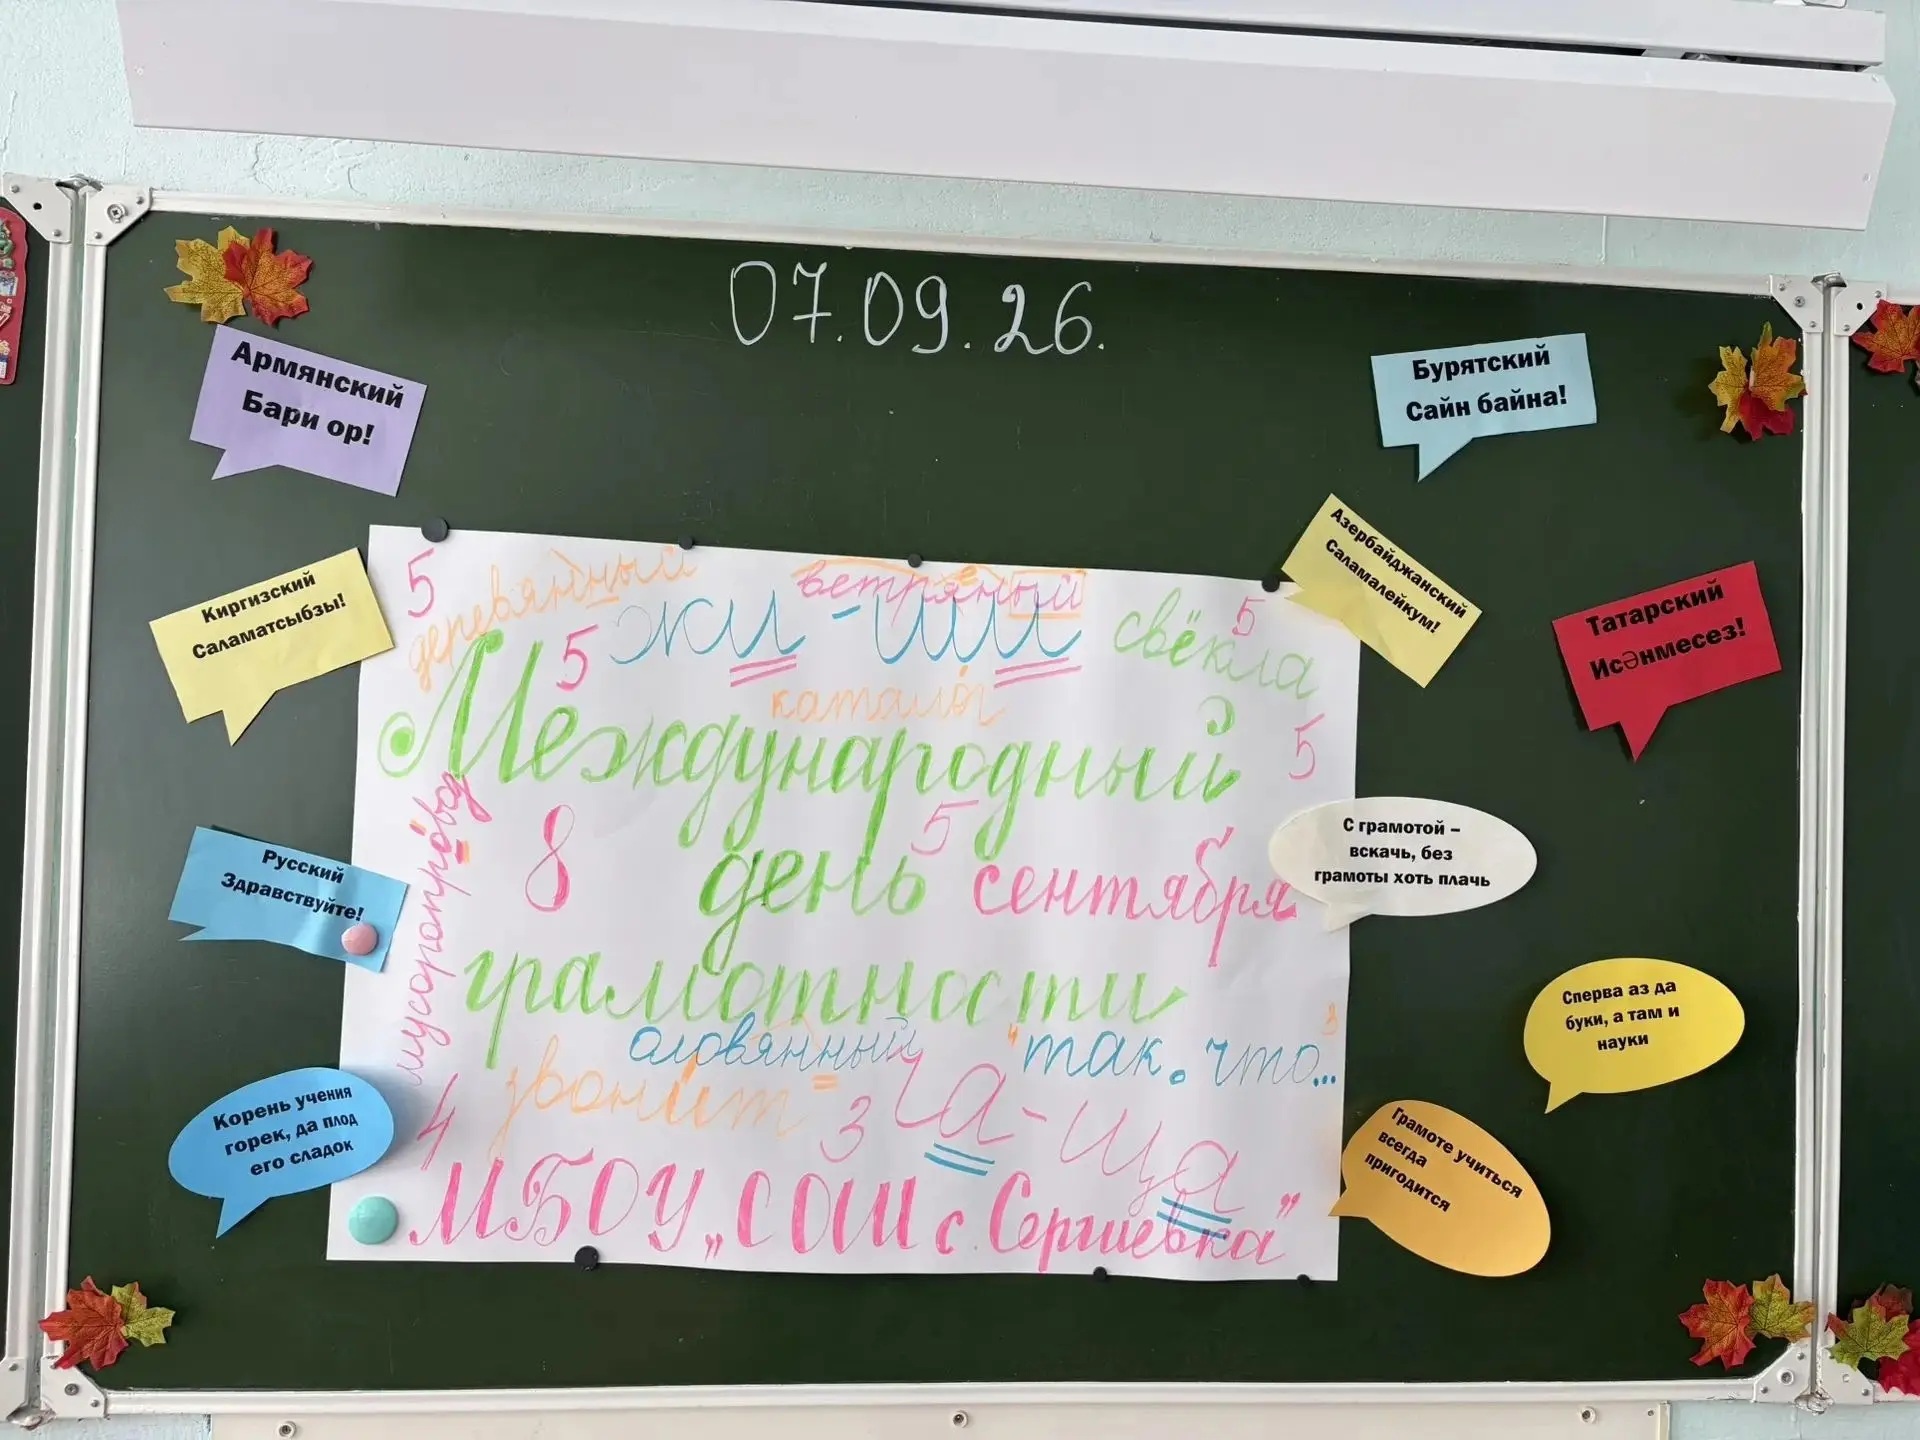 07.09.26.
Армянский
Бари ор!
Бурятский
Сайн байна!
Киргизский
Саламатсыбзы!
Азербайджанский
Саламалейкум!
Татарский
Исәнмесез!
Русский
Здравствуйте!
С грамотой –
вскачь, без
грамоты хоть плачь
Сперва аз да
буки, а там и
науки
Корень учения
горек, да плод
его сладок
Грамоте учиться
всегда
пригодится
5 деревянный ветряный 5
5 жи-ши свёкла
каталог
Международный 5
мусоропровод
5
8 день сентября
грамотности
оловянный "так. что...
звонит = 3 ча-ща
4
МБОУ „СОШ с. Сергиевка"